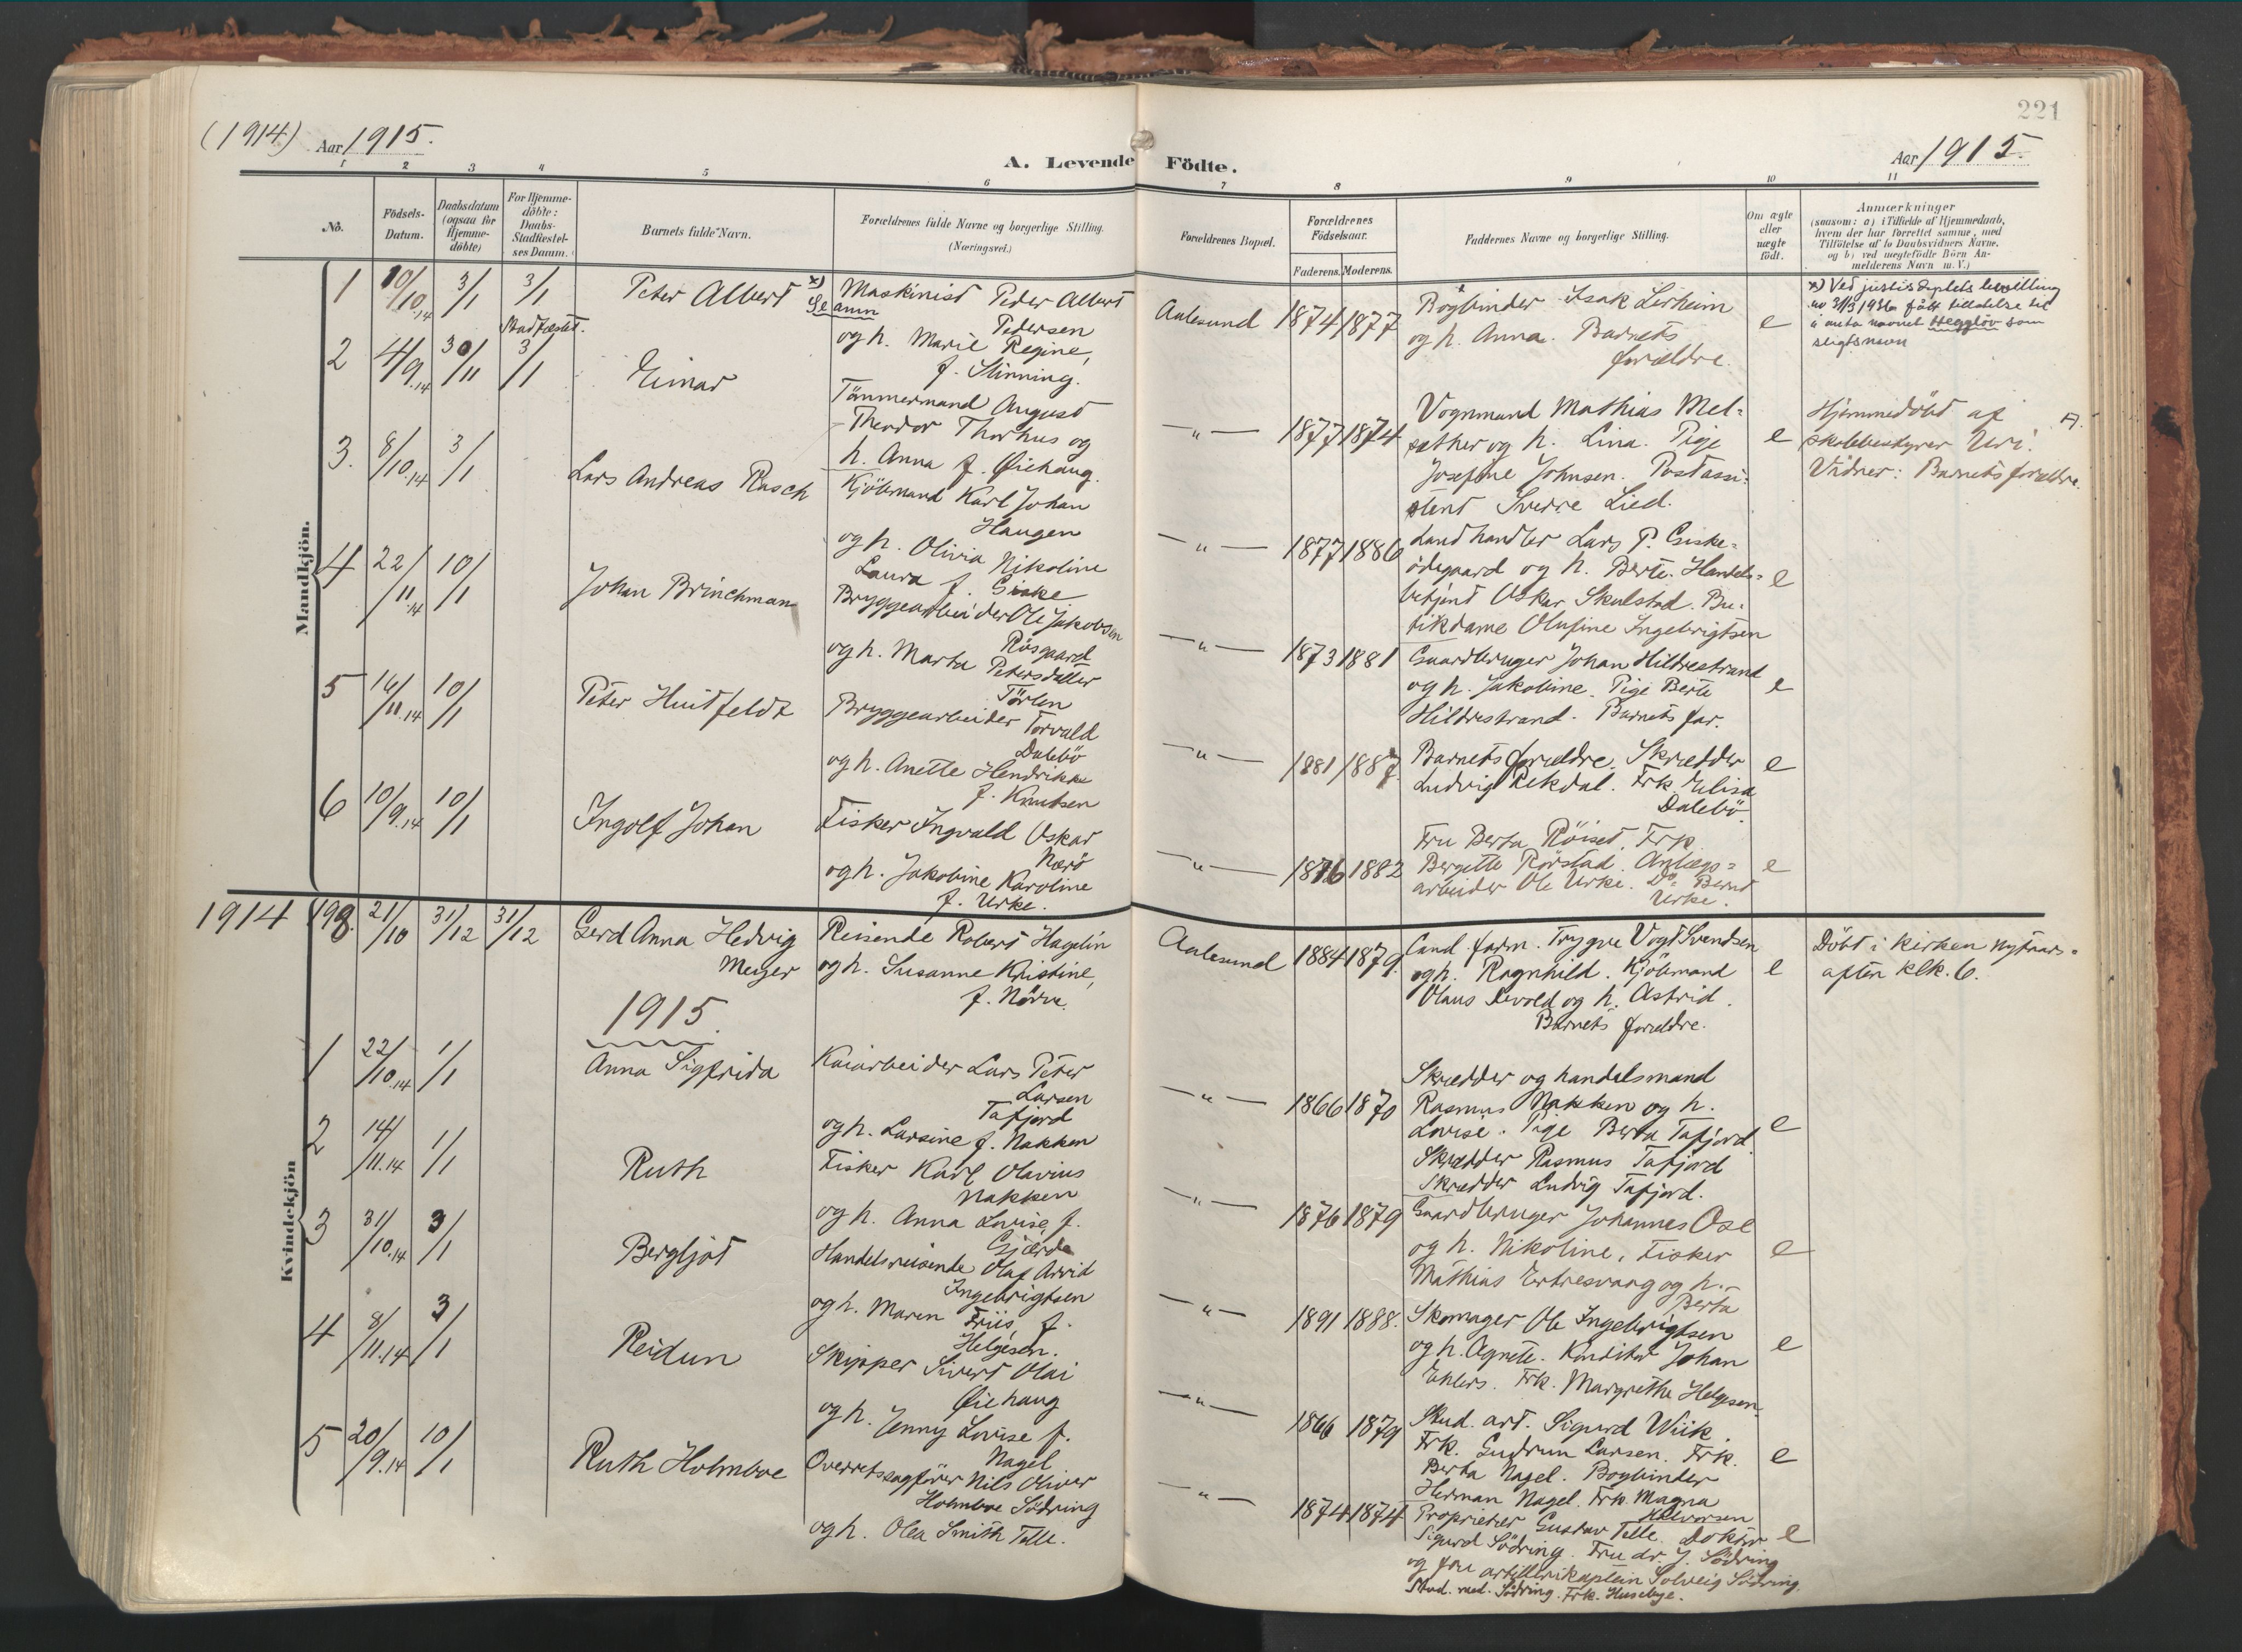 221
(1914) Aar 1915.
Aar 1915.
A. Levende Födte.
1 2 3 4 5 6 7 8 9 10 11
No.
Födsels-
Datum.
Daabsdatum
(ogsaa for
Hjemme-
döbte)
For Hjemme-
döbte:
Daabs-
Stadfæstel-
ses Datum.
Barnets fulde Navn.
Forældrenes fulde Navne og borgerlige Stilling.
(Næringsvei.)
Forældrenes Bopæl.
Forældrenes
Födselsaar.
Faderens. Moderens.
Faddernes Navne og borgerlige Stilling.
Om ægte
eller
uægte
födt.
Anmærkninger
(saasom: a) i Tilfælde af Hjemmedaab,
hvem der har forrettet samme, med
Tilföielse af to Daabsvidners Navne,
og b) ved uægtefödte Börn An-
melderens Navn m. V.)
Mandkjön.
1 10/10.14 3/1 3/1
Stadfæstet.
Peter Albert x)
Se anm
Maskinist Peder Albert
Pedersen
og h. Marie Regine,
f. Slinning.
Aalesund 1874 1877
Bogbinder Isak Lerheim
og h. Anna. Barnets
forældre.
e
x) Ved justisdeptets bevilling
av 31/3 1936 fått tillatelse til
å anta navnet Heggløv som
slegtsnavn
2 4/9.14 30/11 3/1
Einar
Tömmermand August
Theodor Thorhus og
h. Anna f. Øiehaug.
—"— 1877 1874
Vognmand Mathias Mel=
sæther og h. Lina. Pige
Josefine Johnsen. Postassi=
stent Sverre Lied.
e
Hjemmedöbt af
skolebestyrer Uri.
Vidner: Barnets forældre.
3. 8/10.14 3/1
Lars Andreas Rasch
Kjöbmand Karl Johan
Haugen
og h. Olivia Nikoline
Laura f. Giske
—"— 1877 1886
Landhandler Lars P. Giske=
ödegaard og h. Berte. Handels=
betjent Oskar Skulstad. Bu=
tikdame Olufine Ingebrigtsen
e
4 22/11.14 10/1
Johan Brinchman
Bryggearbeider Ole Jakobsen
Rösgaard
og h. Marta Petersdatter
Törlen
—"— 1873 1881
Gaardbruger Johan Hildrestrand
og h. Jakobine. Pige Berte
Hildrestrand. Barnets far.
e
5 16/11.14 10/1
Peter Huitfeldt
Bryggearbeider Torvald
Dalebö
og h. Anette Hendrikke
f. Knutsen
—"— 1881 1887
Barnets forældre. Skrædder
Ludvig Rekdal. Frk. Elisa
Dalebö.
e
6 10/9.14 10/1
Ingolf Johan
Fisker Ingvald Oskar
Nærö
og h. Jakobine Karoline
f. Urke.
—"— 1876 1882
Fru Berta Röiset. Frk.
Bergitte Rörstad. Anlægs=
arbeider Ole Urke. Do Bernt
Urke.
e
1914 198. 21/10 31/12 31/12
Gerd Anna Hedvig
Meyer
Reisende Robert Hagelin
og h. Susanne Kristine,
f. Nörve.
Aalesund 1884 1879.
Cand. farm. Trygve Vogt Svendsen
og h. Ragnhild. Kjöbmand
Olaus Devold og h. Astrid.
Barnets forældre.
e
Döbt i kirken nytaars=
aften klk. 6.
1915.
Kvindekjön
1 22/10.14 1/1
Anna Sigfrida
Kaiarbeider Lars Peter
Larsen
Tafjord
og h. Larsine f. Nakken
—"— 1866 1870
Skrædder og handelsmand
Rasmus Nakken og h.
Lovise. Pige Berta Tafjord
Skrædder Rasmus Tafjord
Skrædder Ludvig Tafjord.
e
2 14/11.14 1/1
Ruth
Fisker Karl Olavius
Nakken
og h. Anna Lovise f.
Gjærde
—"— 1876 1879
Gaardbruger Johannes Ose
og h. Nikoline. Fisker
Mathias Ertresvaag og h.
Berta
e
3 31/10.14 3/1
Bergljot
Handelsreisende Olaf Arvid
Ingebrigtsen
og h. Maren Friis f.
Helgesen.
—"— 1891 1888.
Skomager Ole Ingebrigtsen
og h. Agnete. Konditor Johan
Ehlers. Frk. Margrethe Helgesen.
e
4 8/11.14 3/1
Reidun
Skipper Sivert Olai
Øiehaug
og h. Jenny Lovise f.
Nagel
—"— 1866 1879
Stud. art. Sigurd Wiik.
Frk. Gudrun Larsen. Frk.
Berta Nagel. Bogbinder
Herman Nagel. Frk. Magna
Halvorsen
e
5 20/9.14 10/1
Ruth Holmboe
Overretssagförer Nils Oliver
Holmboe Södring
og h. Olea Smith Telle.
—"— 1874 1874
Proprietær Gustav Telle. Doktor
Sigurd Södring. Fru dr. J. Södring
og fru artillerikaptein Solveig Södring.
Stud. med. Södring. Frk. Husebye.
e